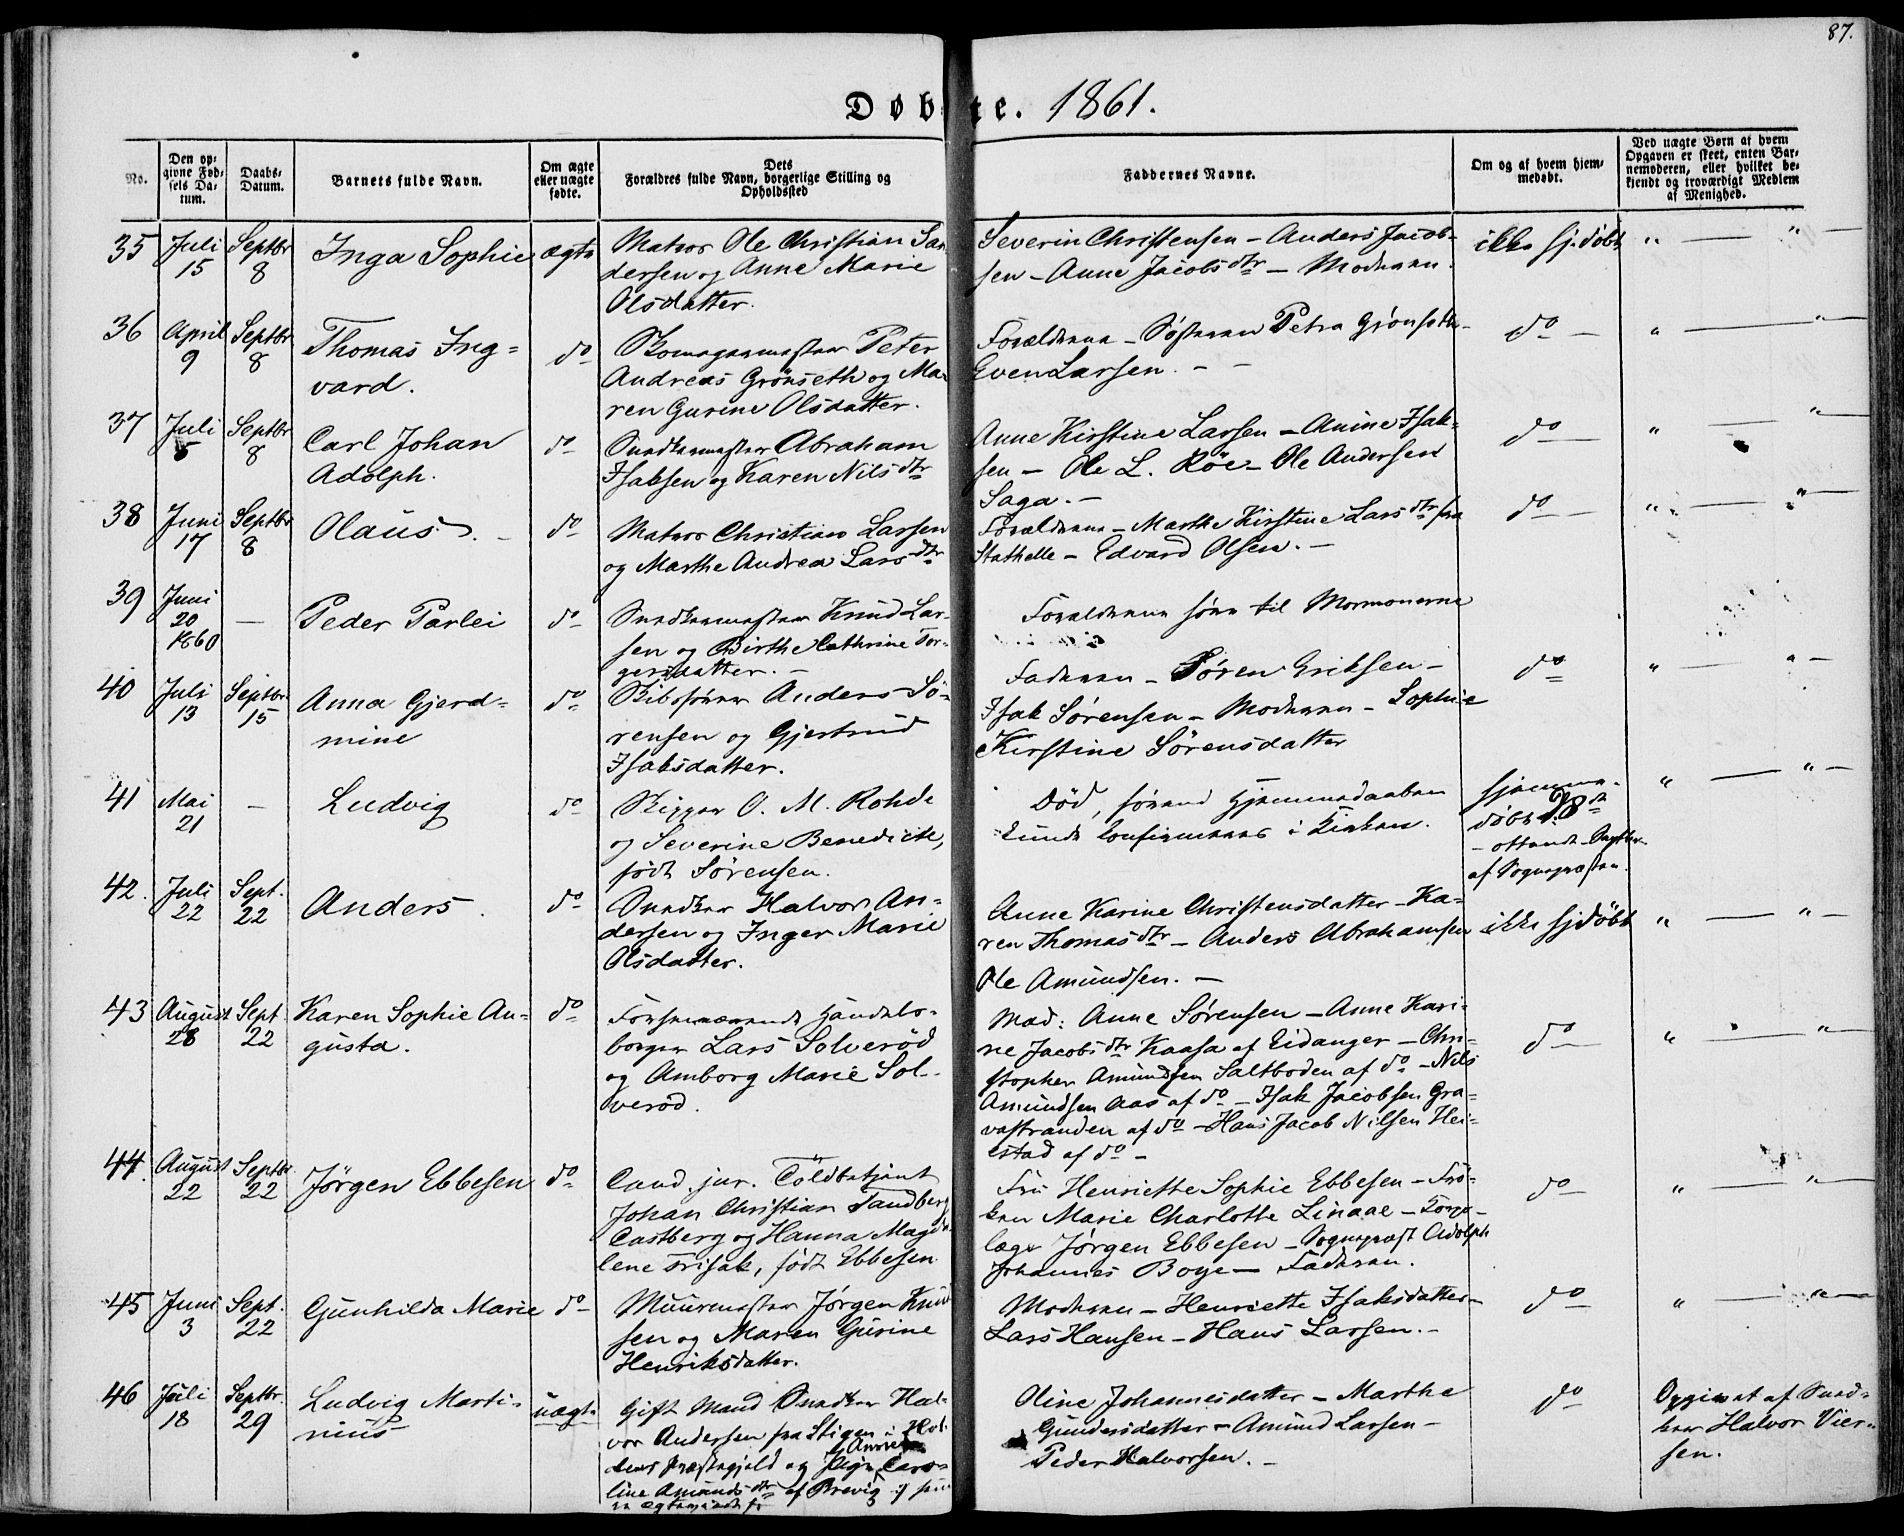 87.
Døbte. 1861.
No.
Den opgivne Fødsels Datum.
Daabs-Datum.
Barnets fulde Navn.
Om ægte eller uægte fødte.
Dets Forældres fulde Navn, borgerlige Stilling og Opholdssted
Faddernes Navne.
Om og af hvem hjemmedøbt.
Ved uægte Børn at hvem Opgaven er skeet, enten Barnemoderen, eller hvilket bekjendt og troværdigt Medlem af Menighed.
35 Juli 15 Septbr 8 Inga Sophie ægte
Matros Ole Christian San
dersen og Anne Marie
Olsdatter.
Severin Christensen - Anders Jacob-
sen - Anne Jacobsdtr - Moderen.
ikke hjdøbt " — " —
36 April 9 Septbr 8 Thomas Ing=
vard. do
Peter
Andreas Grönseth og Ma-
ren Gurine Olsdatter.
Forældrene - Søsteren Petra Grönseth-
Even Larsen. - -
do - " — "
37 Juli 5 Septbr 8 Carl Johan
Adolph. do
Snedkermester Abraham
Isaksen og Karen Nilsdtr
Anne Kirstine Larsen - Anine Isak-
sen - Ole L. Röe - Ole Andersen
Saga. -
do " — "
38 Juni 17 Septbr 8 Olaus. - do
Matros Christian Larsen
og Marthe Andrea Larsdtr
Forældrene - Marthe Kirstine Larsdtr fra
Stathelle - Edvard Olsen. -
do " — "
39 Juni 20 1860 — Peder Parlei do
Snedkermester Knud Lar-
sen og Birthe Cathrine Tor-
gersdatter. -
Forældrene høre til Mormonerne
40 Juli 13 Septbr 15 Anna Gjerd=
mine do
Skibsfører Anders Sö-
rensen og Gjertrud
Isaksdatter.
Faderen - Sören Eriksen -
Isak Sörensen - Moderen - Sophie
Kirstine Sörensdatter
do " — " —
41 Mai 21 — Ludvig do
Skipper O. M. Rohde
og Severine Benedicte,
født Sörensen.
Död, förend Hjemmedaaben
kunde confirmeres i Kirken.
hjemme-
døbt 28de
af Sognepræsten.
" — " —
42. Juli 22 Sept. 22 Anders. do
Snedker Halvor An=
dersen og Inger Marie
Olsdatter.
Anne Karine Christensdatter - Ka-
ren Thomasdtr - Anders Abrahamsen
Ole Amundsen. -
ikke hjdøbt " — " —
43 August 28 Sept. 22 Karen Sophie Au-
gusta. do
Forhenværende Handels-
borger Lars Solveröd
og Amborg Marie Sol-
veröd.
Mad: Anne Sörensen - Anne Kari-
ne Jacobsdtr Kaasa af Eidanger - Chri-
stopher Amundsen Saltboden af do - Nils
Amundsen Aas af do - Isak Jacobsen Gra-
vastranden af do - Hans Jacob Nilsen Hei-
estad af do -
do " — "
44. August 22 Septbr. 22 Jörgen Ebbesen do
Cand. jur. Toldbetjent
Johan Christian Tandberg
Castberg og Hanna Magda
lene Frisak, født Ebbesen.
Fru Henriette Sophie Ebbesen - Frø-
ken Marie Charlotte Linaae -
læge Jörgen Ebbesen - Sognepræst Adolph
Johannes Boye - Faderen.
do " — "
45 Juni 3 Sept. 22 Gunhilda Marie do
Muurmester Jörgen Knud
sen og Maren Gurine
Henriksdatter.
Moderen - Henriette Isaksdatter -
Lars Hansen - Hans Larsen. -
do " — "
46 Juli 18 Septbr. 29 Ludvig Marti-
nius uægte
Gift Mand Snedker Hal-
vor Andersen fra Stigen i Hol-
dens Præstegjeld og Pige Caro-
line Amundsdtr af Brevig
Oline Johannesdatter - Marthe
Gundersdatter - Amund Larsen -
Peder Halvorsen. -
do
Opgivet af Sned-
ker Halvor Vier-
sen.